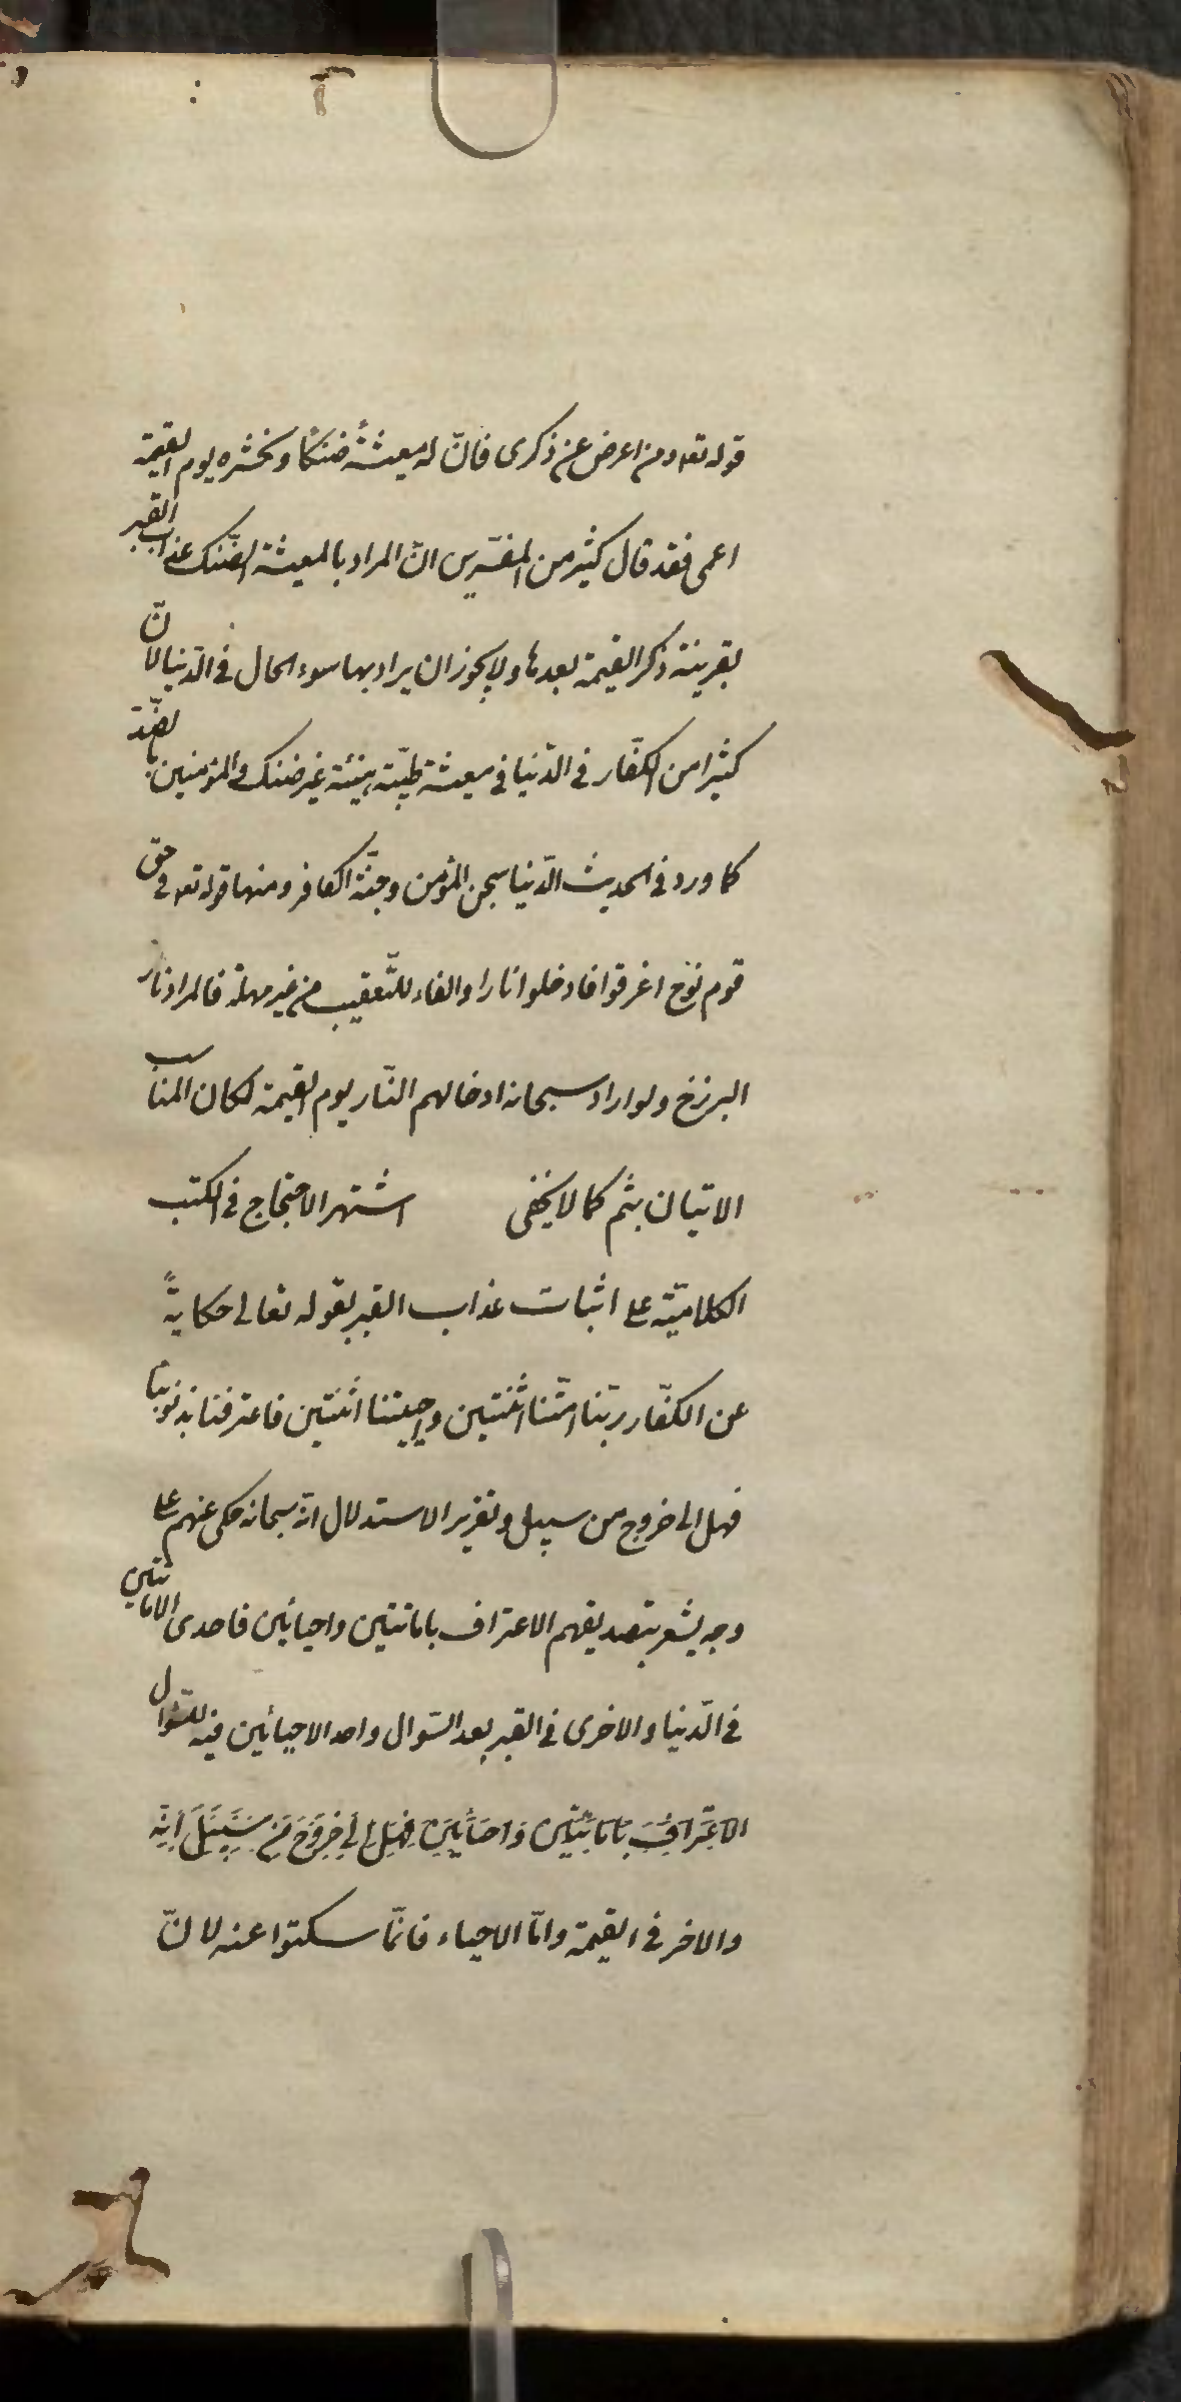 قوله تعه ومن اعرض عن ذكرى فانّ له معيشةً ضنكًا ونحشره يوم القيمة
اعمى فقد قال كثير من المفسّرين انّ المراد بالمعيشة الضّنك عذاب القبر
بقرينة ذكر القيمة بعدها ولا يجوز ان يراد بها سوء الحال فى الدّنيا لانّ
كثيرا من الكفّار فى الدّنيا فى معيشة طيّبة هنيئة غير ضنك والمؤمنين بالضّد
كما ورد فى الحديث الدّنيا سجن المؤمن وجنّة الكافر ومنها قوله تعه فى حق
قوم نوح اغرقوا فادخلوا نارا والفاء للتّعقيب من غير مهلة فالمراد نار
البرزخ ولو اراد سبحانه ادخالهم النّار يوم القيمة لكان المناسب
الاتيان بثم كما لا يخفى اشتهر الاحتجاج فى الكتب
الكلاميّة على اثبات عذاب القبر بقوله تعالى حكايةً
عن الكفّار ربّنا امتّنا اثنتين واحييتنا اثنتين فاعترفنا بذنوبنا
فهل الى خروج من سبيل وتقرير الاستدلال انّه سبحانه حكى عنهم على
وجه يشعر بتصديقهم الاعتراف باماتتين واحيائين فاحدى الاماتتين
فى الدّنيا والاخرى فى القبر بعد السّوال واحد الاحيائين فيه للسّؤال
الاعتراف باماتتين واحيائين فهل الى خروج من سبيل انّه
والاخر فى القيمة وامّا الاحياء فانّما سكتوا عنه لانّ